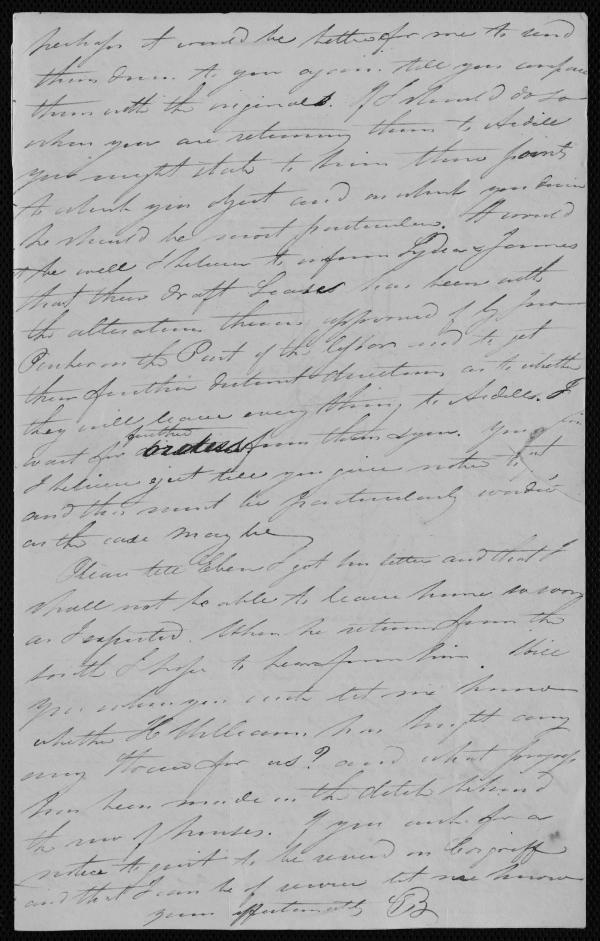 perhaps it would be better for me to send
them down to you again till you compare
them with the originals. If I should do so
when you are returning them to Ardill
you might state to him those points
to which you object and on which you desire
he should be most particular. It would
be well I believe to inform Lydia & James
that their draft Leases has been with
the alterations therein approved of by
on the Part of the lessor and to get
their further distinct directions as to whether
they will leave everything to Ardill. I
wait for further orders from them & you. You
I believe eject till you give notice to quit
and this must be particularly worded
as the case may be
Please tell Eben I got his letter and that I
shall not be able to leave home so soon
as I expected. When he returns from the
south I hope to hear from him. Will
you when you write let me know
whether H Williams has bought any
for us? and what progress
has been made in the ditch behind
the row of houses. If you wish for a
notice to quit to be served on Cosgriff
and that I can be of service let me know
yours affectionately